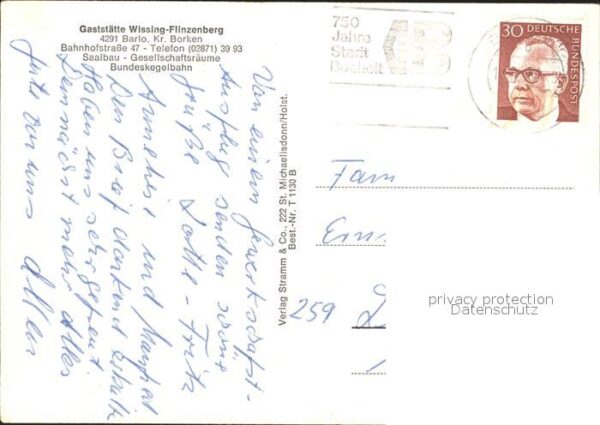 Gaststätte Wissing-Flinzenberg
4291 Barlo, Kr. Borken
Bahnhofstraße 47 - Telefon (02871) 39 93
Saalbau - Gesellschaftsräume
Bundeskegelbahn
750
Jahre
Stadt
Bocholt
30
DEUTSCHE
BUNDESPOST
Von einem Gewerkschafts-
Ausflug senden
Grüße Lotte - Fritz
Annelise und Manfred
Den Brief dankend erhalten
Haben uns sehr gefreut
Demnächst mehr Alles
gute von uns Allen
Verlag Stramm & Co., 222 St. Michaelisdonn/Holst.
Best.-Nr. T 1130 B
Fam
259
privacy protection
Datenschutz